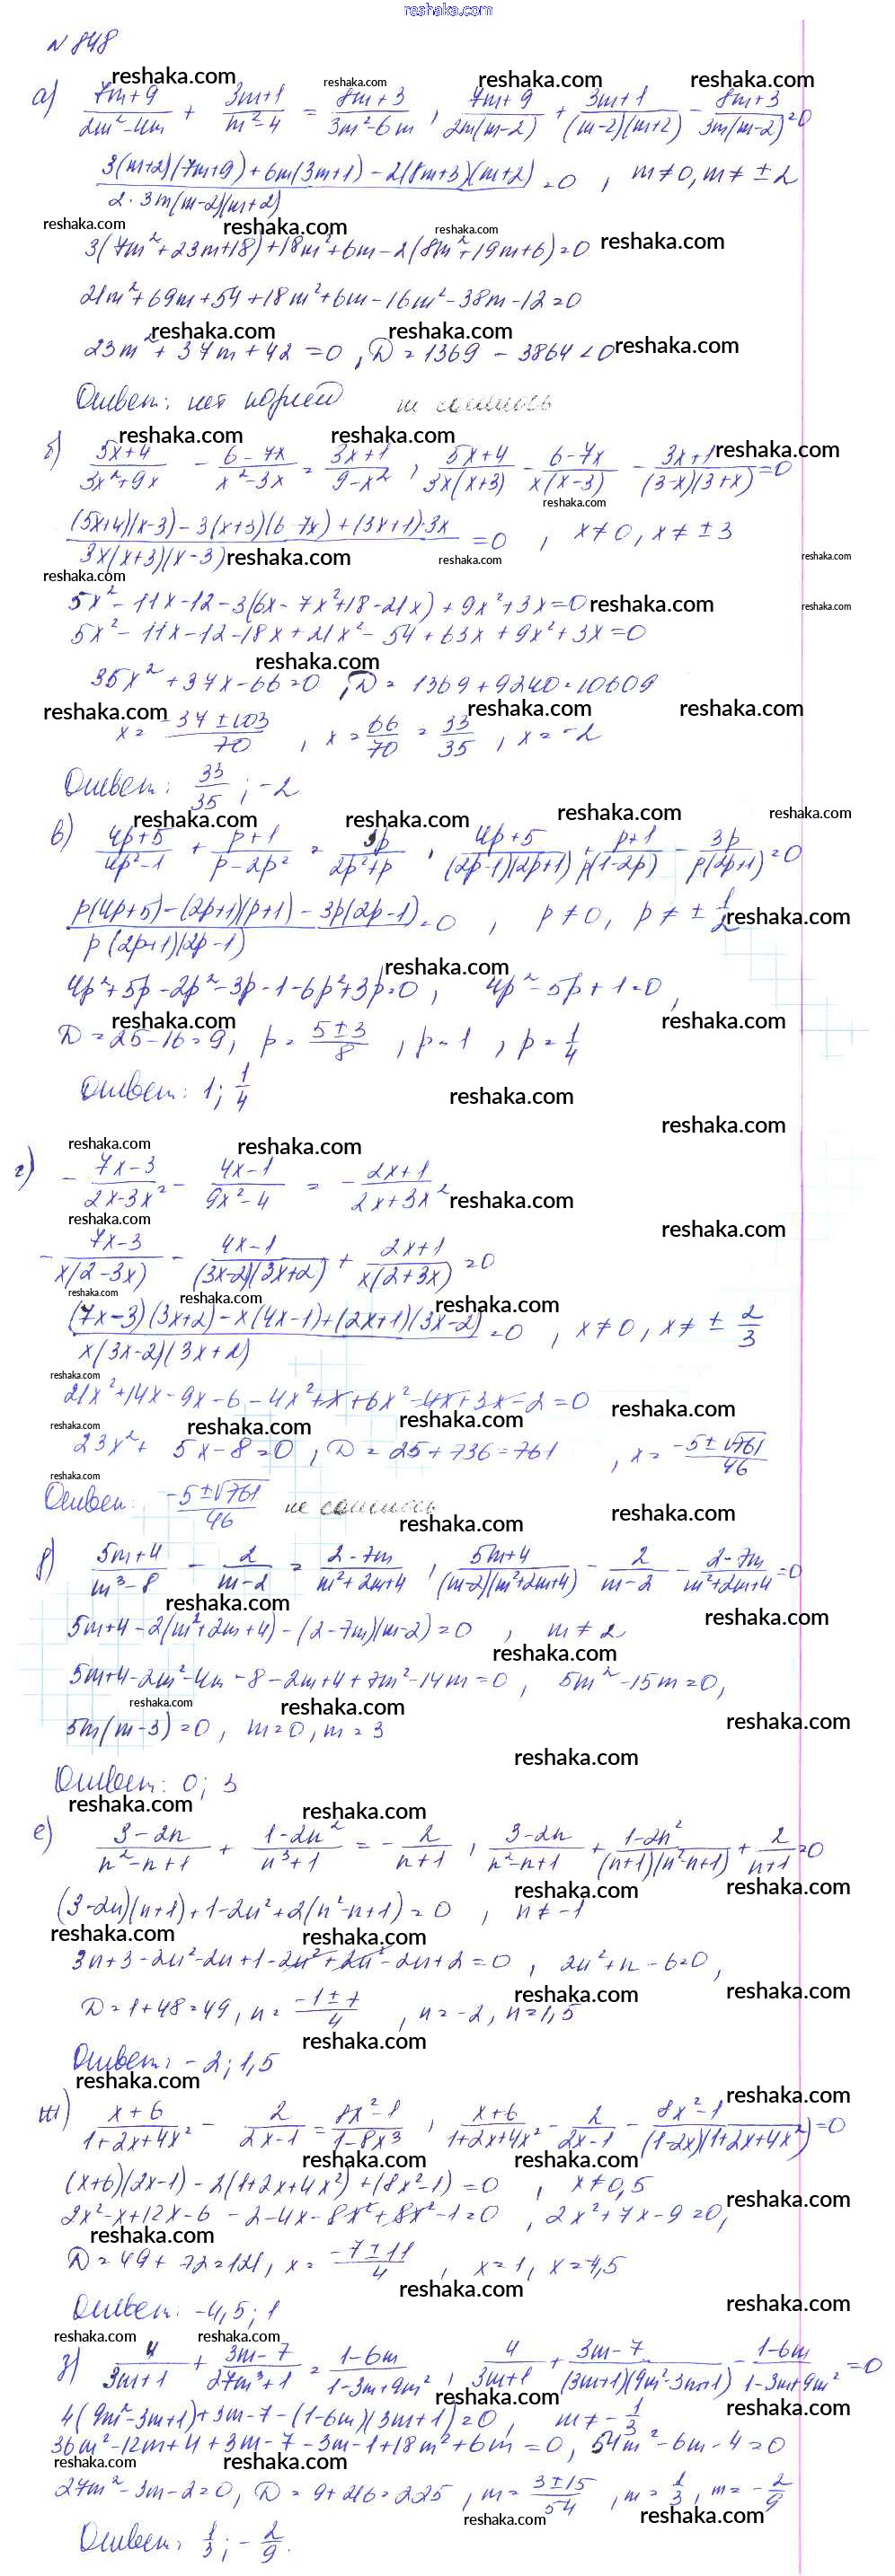 reshaka.com
N 848
а) (7m+9)/(2m²-4m) + (3m+1)/(m²-4) = (8m+3)/(3m²-6m) , (7m+9)/(2m(m-2)) + (3m+1)/((m-2)(m+2)) - (8m+3)/(3m(m-2)) = 0
(3(m+2)(7m+9)+6m(3m+1)-2(8m+3)(m+2))/(2·3m(m-2)(m+2)) = 0 , m≠0, m≠±2
3(7m²+23m+18)+18m²+6m-2(8m²+19m+6)=0
21m²+69m+54+18m²+6m-16m²-38m-12=0
23m²+37m+42=0 , D=1369-3864<0
Ответ: нет корней не сошлось
б) (5x+4)/(3x²+9x) - (6-7x)/(x²-3x) = (3x+1)/(9-x²) , (5x+4)/(3x(x+3)) - (6-7x)/(x(x-3)) - (3x+1)/((3-x)(3+x)) = 0
((5x+4)(x-3)-3(x+3)(6-7x)+(3x+1)·3x)/(3x(x+3)(x-3)) = 0 , x≠0, x≠±3
5x²-11x-12-3(6x-7x²+18-21x)+9x²+3x=0
5x²-11x-12-18x+21x²-54+63x+9x²+3x=0
35x²+37x-66=0 , D=1369+9240=10609
x=(-37±103)/70 , x=66/70=33/35 , x=-2
Ответ: 33/35 ; -2
в) (4p+5)/(4p²-1) + (p+1)/(p-2p²) = 3p/(2p²+p) , (4p+5)/((2p-1)(2p+1)) + (p+1)/(p(1-2p)) - 3p/(p(2p+1)) = 0
(p(4p+5)-(2p+1)(p+1)-3p(2p-1))/(p(2p+1)(2p-1)) = 0 , p≠0, p≠±1/2
4p²+5p-2p²-3p-1-6p²+3p=0 , 4p²-5p+1=0 ,
D=25-16=9, p=(5±3)/8 , p=1 , p=1/4
Ответ: 1; 1/4
г) -(7x-3)/(2x-3x²) - (4x-1)/(9x²-4) = -(2x+1)/(2x+3x²)
-(7x-3)/(x(2-3x)) - (4x-1)/((3x-2)(3x+2)) + (2x+1)/(x(2+3x)) = 0
((7x-3)(3x+2)-x(4x-1)+(2x+1)(3x-2))/(x(3x-2)(3x+2)) = 0 , x≠0, x≠±2/3
21x²+14x-9x-6-4x²+x+6x²-4x+3x-2=0
23x²+ 5x-8=0 , D=25+736=761 , x=(-5±√761)/46
Ответ: (-5±√761)/46 не сошлось
д) (5m+4)/(m³-8) - 2/(m-2) = (2-7m)/(m²+2m+4) , (5m+4)/((m-2)(m²+2m+4)) - 2/(m-2) - (2-7m)/(m²+2m+4) = 0
5m+4-2(m²+2m+4)-(2-7m)(m-2)=0 , m≠2
5m+4-2m²-4m-8-2m+4+7m²-14m=0 , 5m²-15m=0,
5m(m-3)=0, m=0, m=3
Ответ: 0; 3
е) (3-2n)/(n²-n+1) + (1-2n²)/(n³+1) = -2/(n+1) , (3-2n)/(n²-n+1) + (1-2n²)/((n+1)(n²-n+1)) + 2/(n+1) = 0
(3-2n)(n+1)+1-2n²+2(n²-n+1)=0 , n≠-1
3n+3-2n²-2n+1-2n²+2n²-2n+2=0 , 2n²+n-6=0,
D=1+48=49, n=(-1±7)/4 , n=-2, n=1,5
Ответ: -2; 1,5
ж) (x+6)/(1+2x+4x²) - 2/(2x-1) = (8x²-1)/(1-8x³) , (x+6)/(1+2x+4x²) - 2/(2x-1) - (8x²-1)/((1-2x)(1+2x+4x²)) = 0
(x+6)(2x-1)-2(1+2x+4x²)+(8x²-1)=0 , x≠0,5
2x²-x+12x-6-2-4x-8x²+8x²-1=0 , 2x²+7x-9=0,
D=49+72=121, x=(-7±11)/4 , x=1, x=-4,5
Ответ: -4,5; 1
з) 4/(3m+1) + (3m-7)/(27m³+1) = (1-6m)/(1-3m+9m²) , 4/(3m+1) + (3m-7)/((3m+1)(9m²-3m+1)) - (1-6m)/(1-3m+9m²) = 0
4(9m²-3m+1)+3m-7-(1-6m)(3m+1)=0, m≠-1/3
36m²-12m+4+3m-7-3m-1+18m²+6m=0, 54m²-6m-4=0
27m²-3m-2=0, D=9+216=225 , m=(3±15)/54 , m=1/3 , m=-2/9
Ответ: 1/3 ; -2/9.